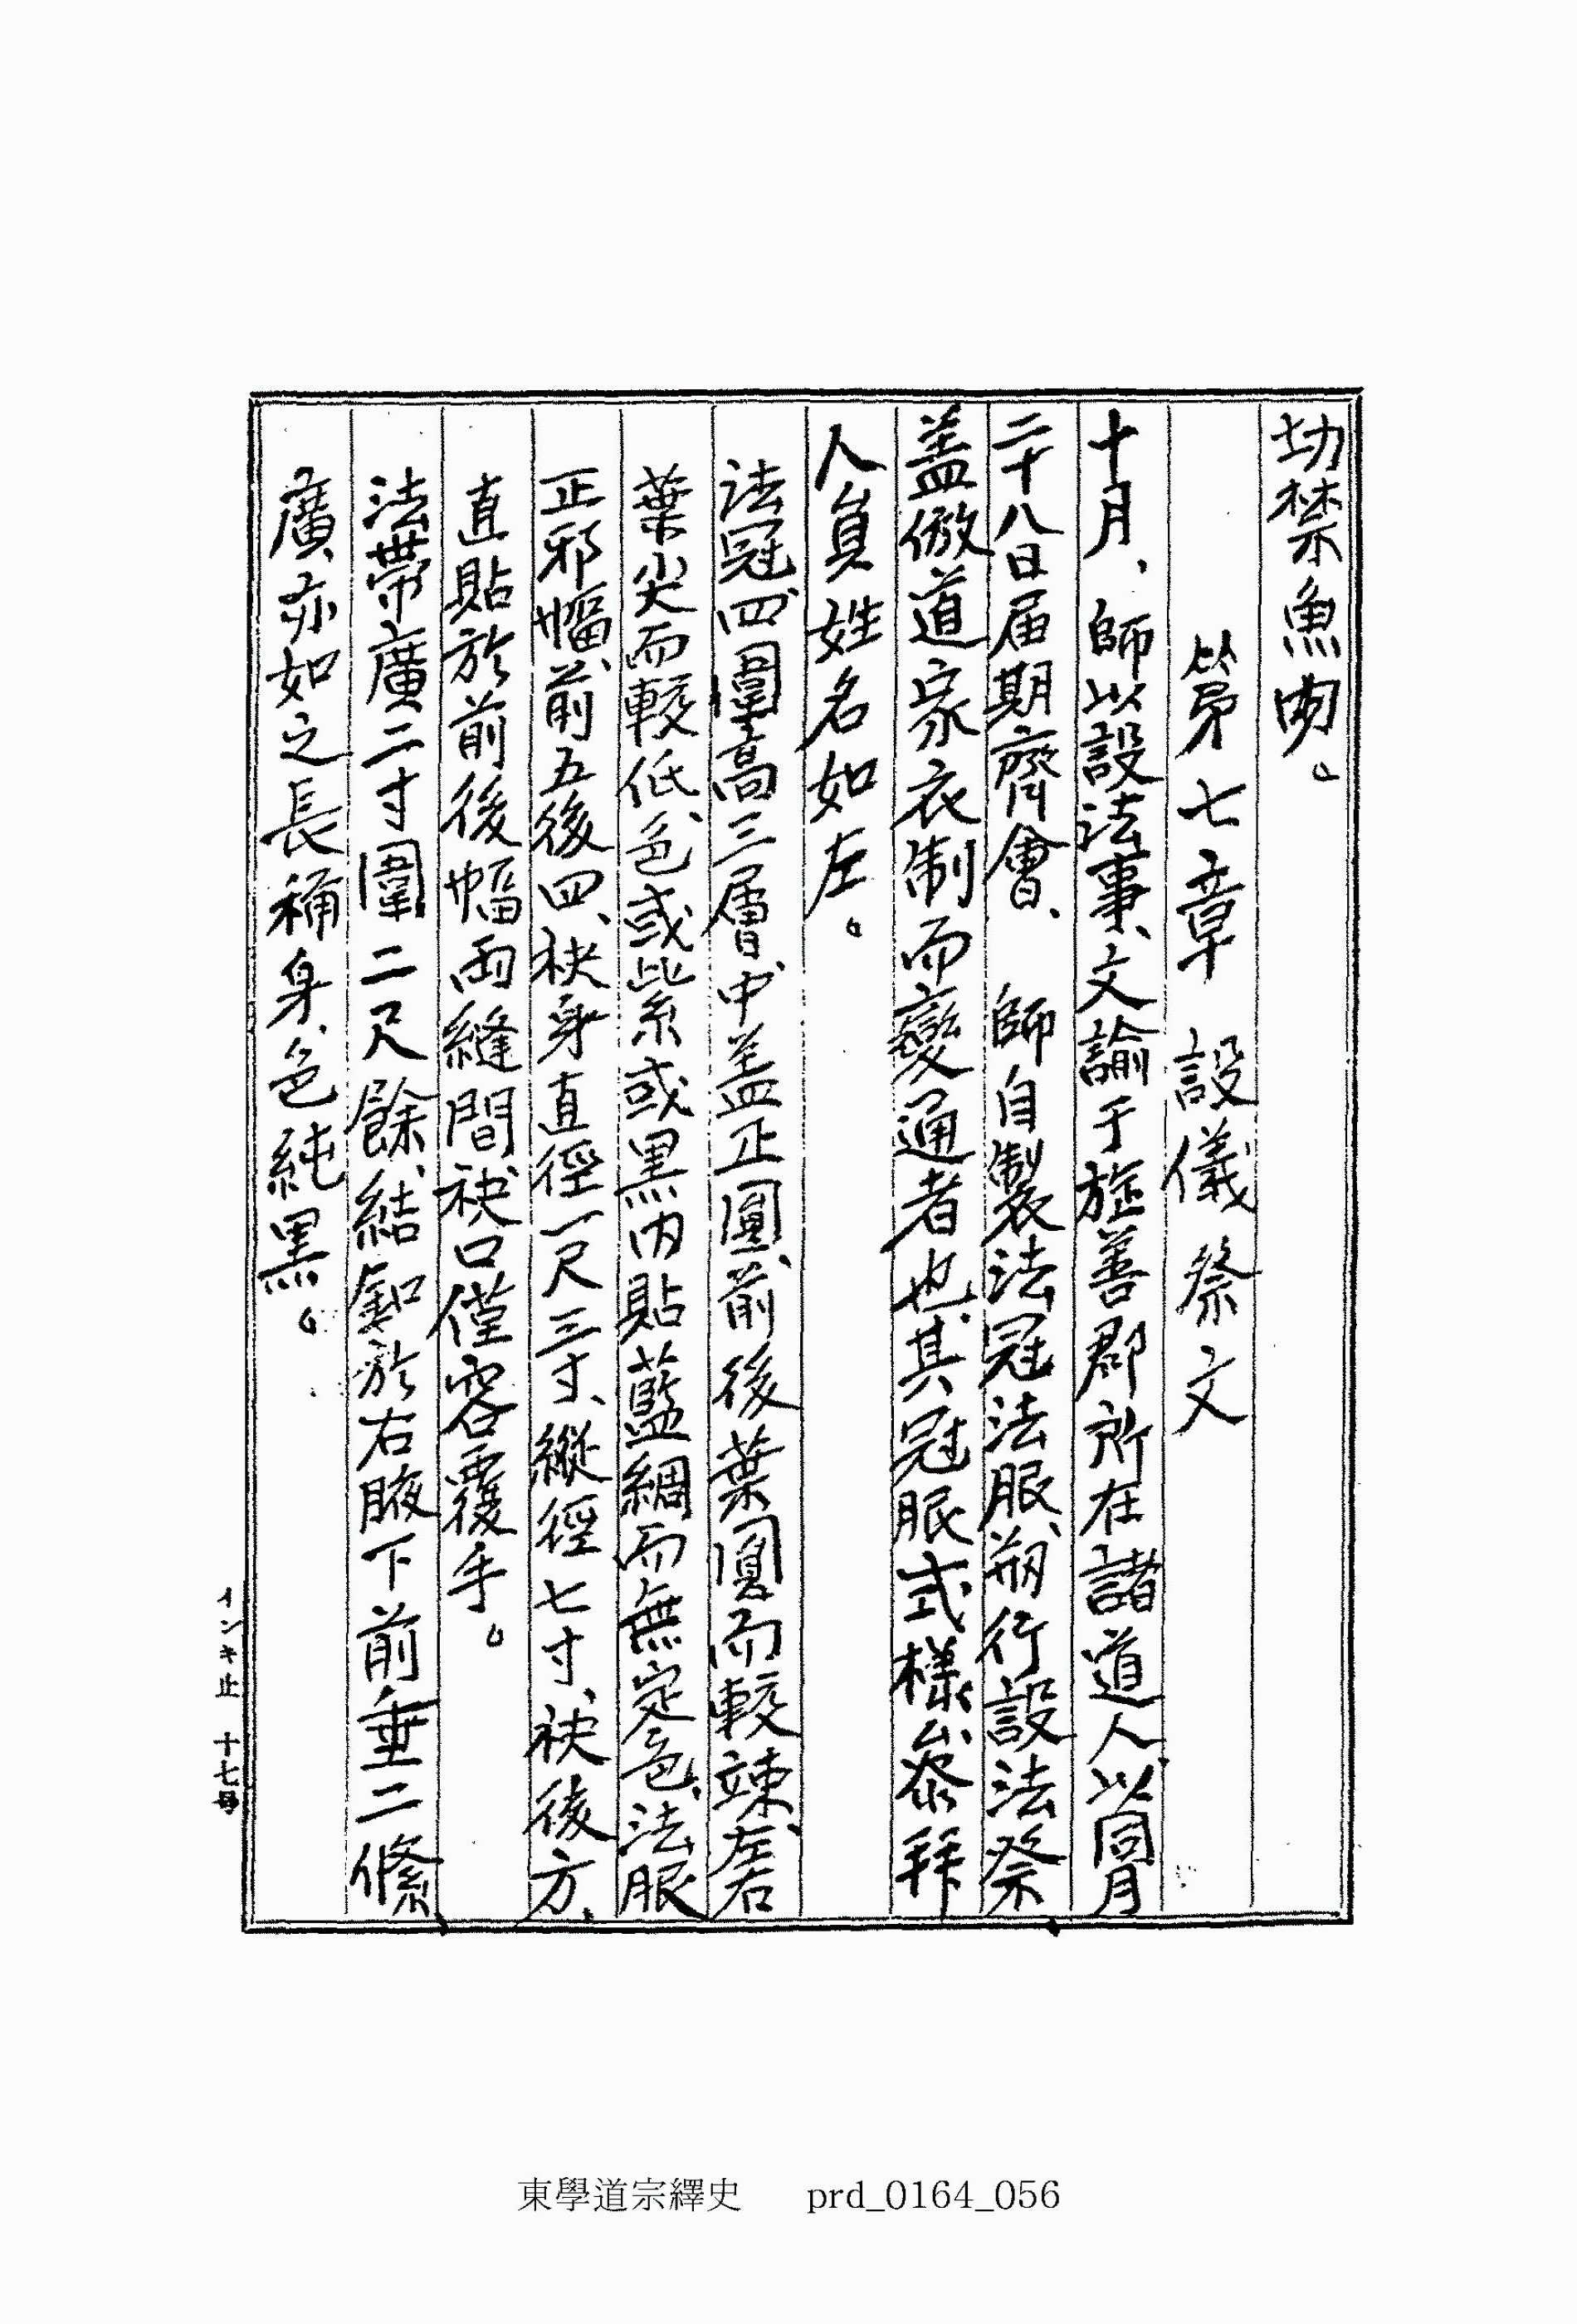 切禁魚肉。
第七章 設儀祭文
十月、師以設法事、文諭于旌善郡所在諸道人、以同月
二十八日届期齊會、 師自製法冠法服、刱行設法祭
盖倣道家衣制而變通者也、其冠服式樣、叅拜
人員姓名如左。
法冠、四圍高三層、中盖正圓、前後葉圓而較竦、左右
葉尖而較低、色或紫或黒内貼藍綢而無定色、法服
正邪幅、前五後四、袂身直徑一尺三寸、縱徑七寸、袂後方、
直貼於前後幅両縫間袂口僅容覆手。
法帶廣二寸圍二尺餘、結釦於右腋下前垂二絛
廣、亦如之長稱身、色純黒。
インキ止 十七号
東學道宗繹史 prd_0164_056